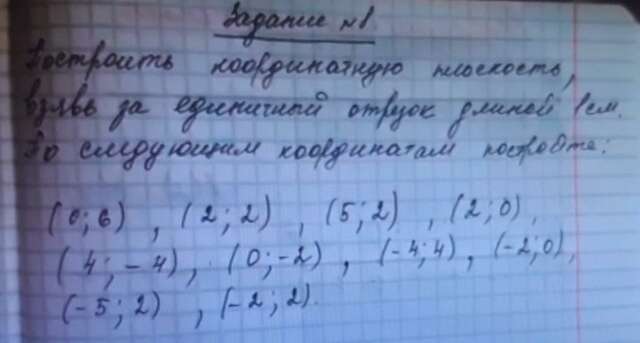 Задание №1
Построить координатную плоскость,
взявь за единичный отрезок длиной 1см.
По следующим координатам постройте:
(0; 6) , (2; 2) , (5; 2) , (2; 0),
(4; -4), (0; -2) , (-4; 4), (-2; 0),
(-5; 2) , (-2; 2).